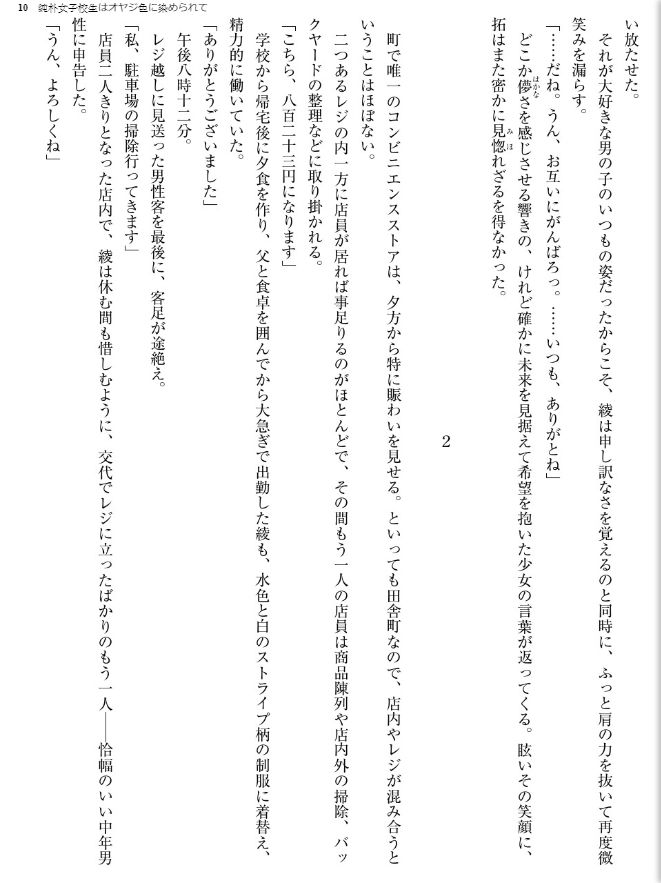 10 純朴女子校生はオヤジ色に染められて
い放たせた。
それが大好きな男の子のいつもの姿だったからこそ、綾は申し訳なさを覚えるのと同時に、ふっと肩の力を抜いて再度微
笑みを漏らす。
「……だね。うん、お互いにがんばろっ。……いつも、ありがとね」
どこか儚さを感じさせる響きの、けれど確かに未来を見据えて希望を抱いた少女の言葉が返ってくる。眩いその笑顔に、
拓はまた密かに見惚れざるを得なかった。
2
町で唯一のコンビニエンスストアは、夕方から特に賑わいを見せる。といっても田舎町なので、店内やレジが混み合うと
いうことはほぼない。
二つあるレジの内一方に店員が居れば事足りるのがほとんどで、その間もう一人の店員は商品陳列や店内外の掃除、バッ
クヤードの整理などに取り掛かれる。
「こちら、八百二十三円になります」
学校から帰宅後に夕食を作り、父と食卓を囲んでから大急ぎで出勤した綾も、水色と白のストライプ柄の制服に着替え、
精力的に働いていた。
「ありがとうございました」
午後八時十二分。
レジ越しに見送った男性客を最後に、客足が途絶え。
「私、駐車場の掃除行ってきます」
店員二人きりとなった店内で、綾は休む間も惜しむように、交代でレジに立ったばかりのもう一人――恰幅のいい中年男
性に申告した。
「うん、よろしくね」